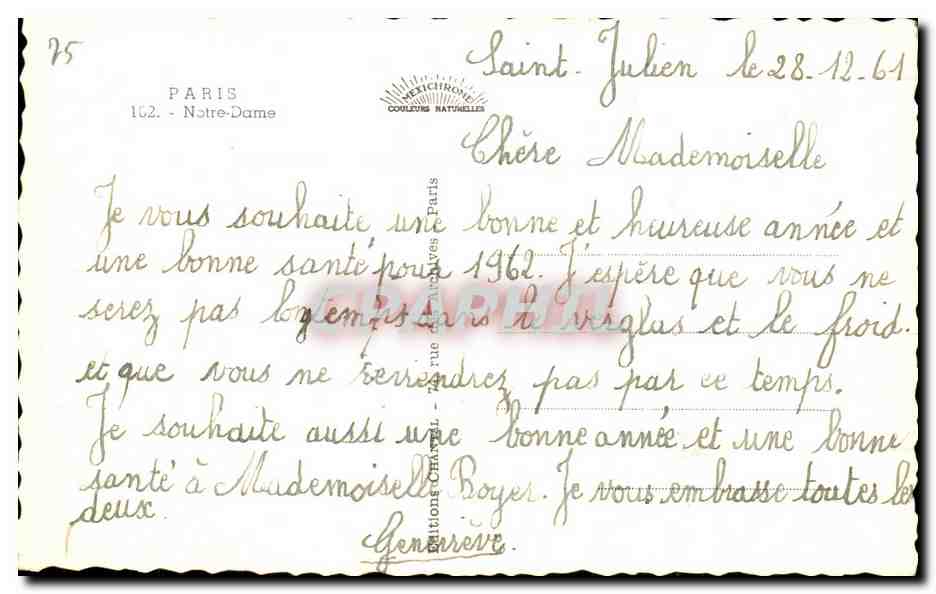 75
Saint-Julien le 28-12-61
PARIS
162. - Notre-Dame
MEXICHROME
COULEURS NATURELLES
Chère Mademoiselle
Je vous souhaite une bonne et heureuse année et
une bonne santé pour 1962. J'espère que vous ne
serez pas longtemps dans le verglas et le froid.
et que vous ne par ce temps.
Je souhaite aussi une bonne année et une bonne
santé à Mademoiselle Boyer. Je vous embrasse toutes les
deux.
Geneviève.
Editions CHANTAL - 74, rue des Archives - Paris